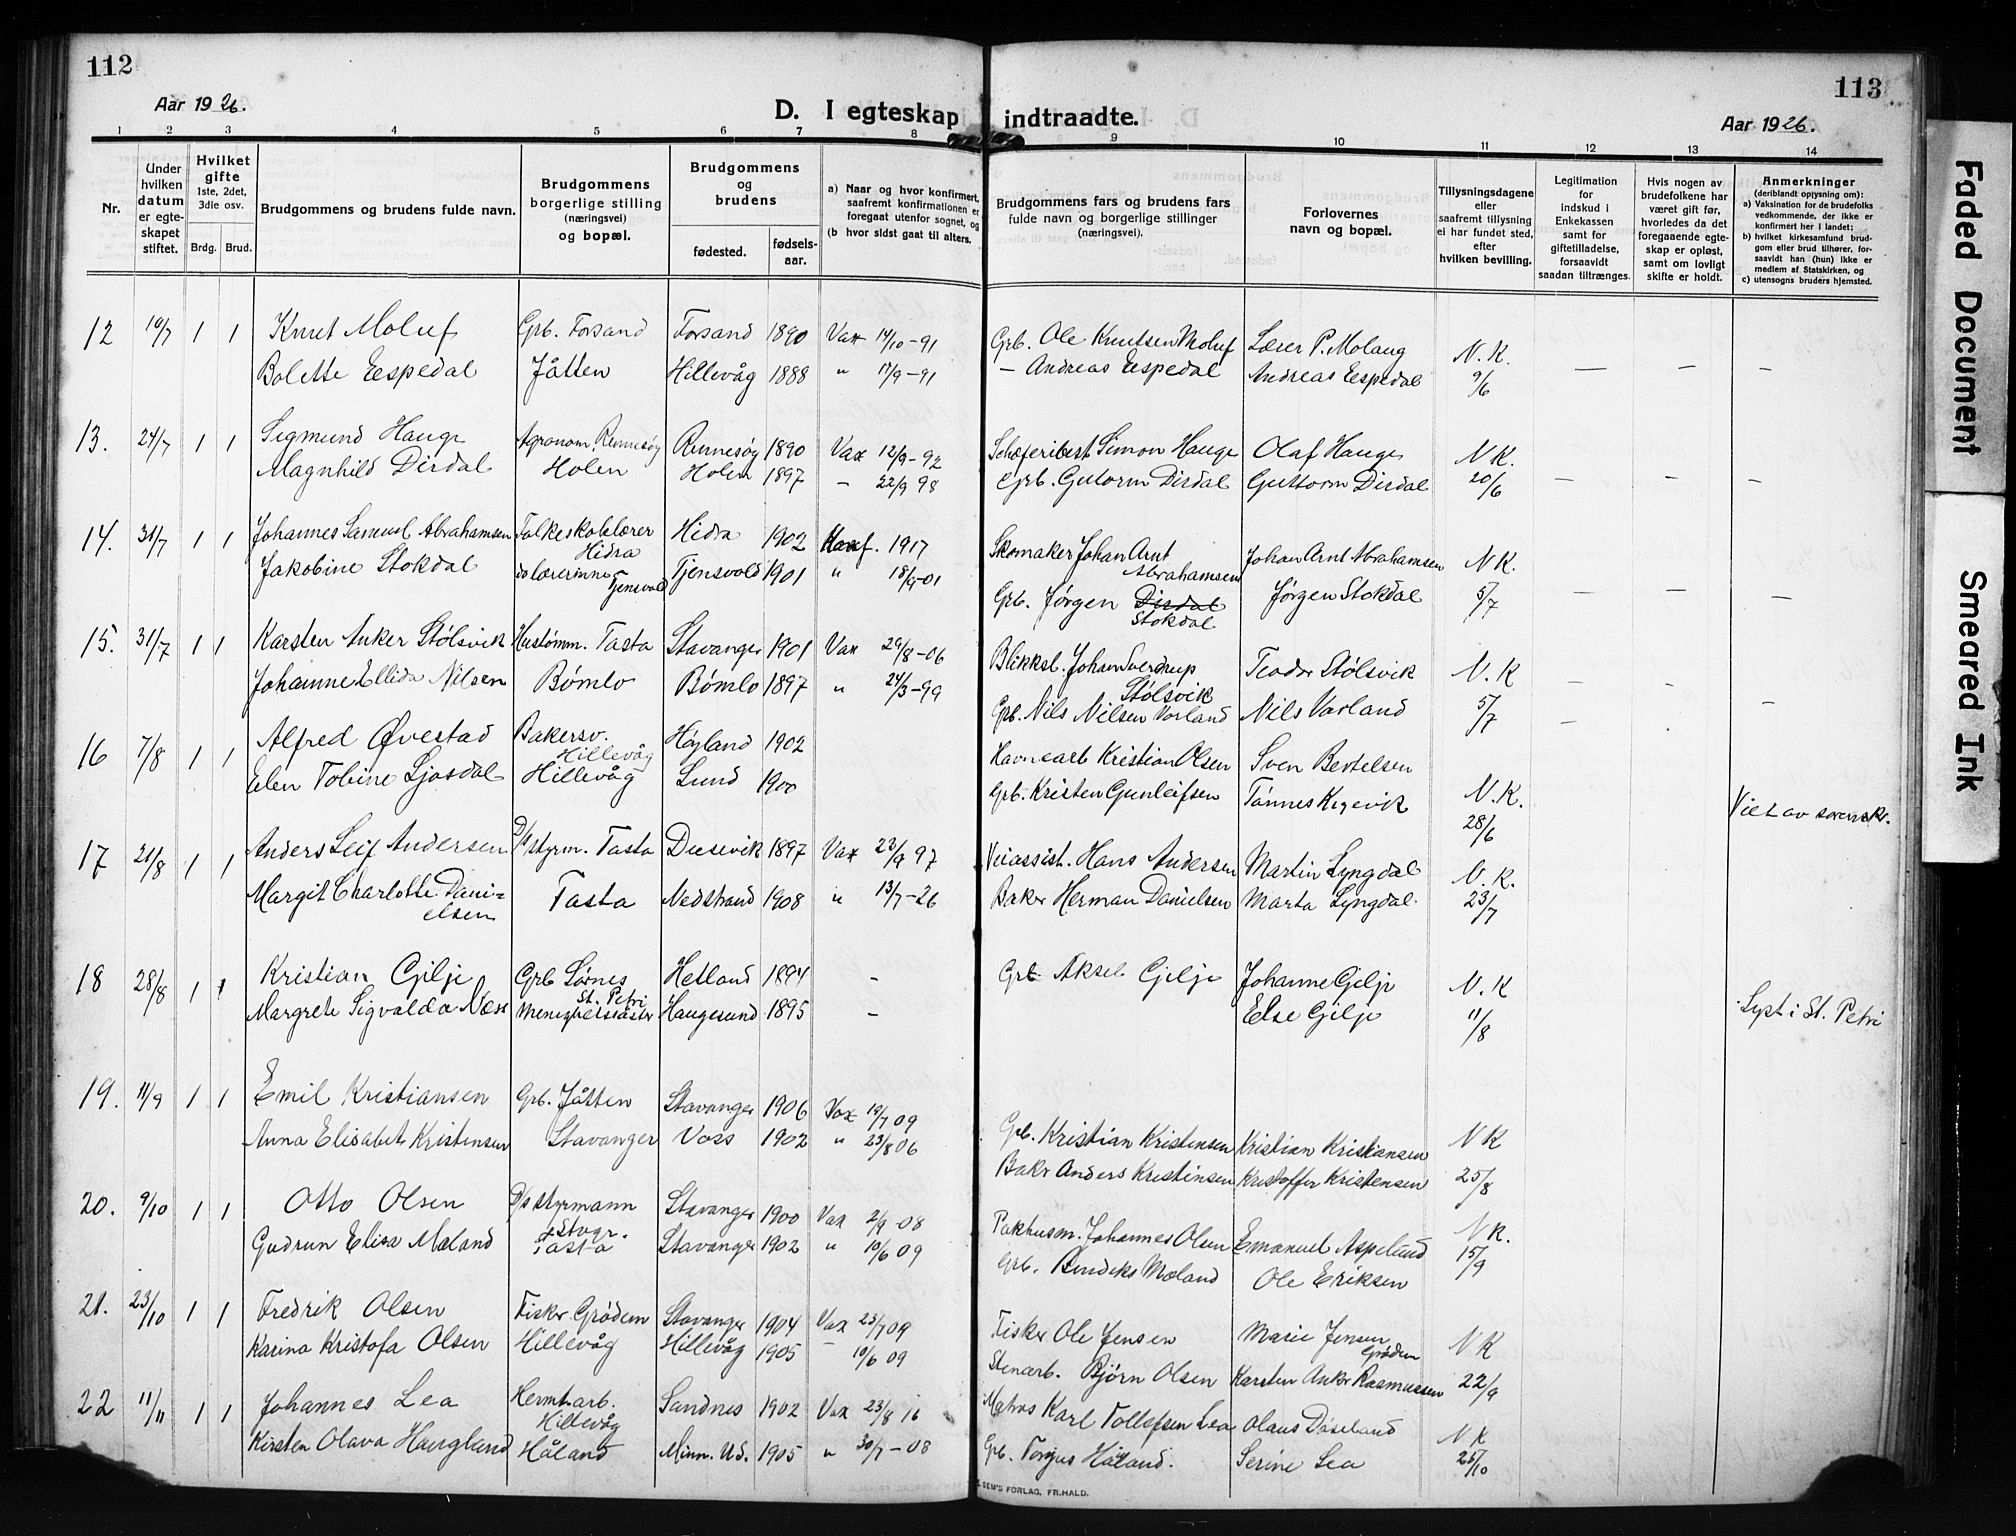 112
113
Aar 1926.
D. I egteskap indtraadte.
Aar 1926.
1 2 3 4 5 6 7 8 9 10 11 12 13 14
Nr.
Under hvilken datum er egteskapet stiftet.
Hvilket gifte 1ste, 2det, 3die osv.
Brdg. Brud.
Brudgommens og brudens fulde navn.
Brudgommens borgerlige stilling (næringsvei) og bopæl.
Brudgommens og brudens
fødested. fødselsaar.
a) Naar og hvor konfirmert, saafremt konfirmationen er foregaat utenfor sognet, og
(b hvor sidst gaat til alters.
Brudgommens fars og brudens fars fulde navn og borgerlige stillinger (næringsvei).
Forlovernes navn og bopæl.
Tillysningsdagene eller saafremt tillysning ei har fundet sted, efter hvilken bevilling.
Legitimation for indskud i Enkekassen samt for giftetilladelse, forsaavidt saadan tiltrænges.
Hvis nogen av brudefolkene har været gift før, hvorledes da det foregaaende egteskap er opløst, samt om lovligt skifte er holdt.
Anmerkninger (deriblandt oplysning om):
a) Vaksination for de brudefolks vedkommende, der ikke er konfirmert her i landet;
b) hvilket kirkesamfund brudgom eller brud tilhører, forsaavidt han (hun) ikke er medlem af Statskirken, og
c) utensogns bruders hjemsted.
12 10/7 1 1 Knut Moluf Grb. Forsand Forsand 1890 Vax 14/10-91 Grb. Ole Knutsen Moluf Lærer P. Molaug N. K.
Bolette Espedal Jåtten Hillevåg 1888 " 17/9-91 - Andreas Espedal Andreas Espedal 9/6 — — —
13. 24/7 1 1 Sigmund Hauge Agronom Rennesøy Rennesøy 1890 Vax 12/9-92 Simon Hauge Olaf Hauge N K.
Magnhild Dirdal Holen Holen 1897 - 22/9 98 Grb. Gutorm Dirdal Guttorm Dirdal 20/6 — — —
14. 31/7 1 1 Johannes Samuel Abrahamsen Folkeskolelærer Hidra Hidra 1902 Konf. 1917 Skomaker Johan Arnt Abrahamsen Johan Arnt Abrahamsen N K.
Jakobine Stokdal do lærerinne Tjensvold Tjensvold 1901 " 18/9-01 Grb. Jørgen Dirdal Stokdal Jørgen Stokdal 5/7 — — —
15. 31/7 1 1 Karsten Anker Stølsvik Hustømm. Tasta Stavanger 1901 Vax 29/8-06 Blikksl. Johan Sverdrup Stølsvik Teodor Stølsvik N. K
Johanne Ellida Nilsen Bømlo Bømlo 1897 " 24/3-99 Grb. Nils Nilsen Vorland Nils Vorland 5/7 — — —
16 7/8 1 1 Alfred Øvestad Bakersv. Hillevåg Høyland 1902 Havnearb Kristian Olsen Sven Bertelsen
Elen Tobine Ljosdal Hillevåg Lund 1900 Grb. Kristen Gunleifsen Tønnes N. K. 28/6 Viet av sorenskr.
17 21/8 1 1 Anders Leif Andersen D/s styrm. Tasta Dusevik 1897 Vax 23/9 97 Veiassist. Hans Andersen Martin Lyngdal N. K.
Margit Charlotte Danielsen Tasta Nedstrand 1908 " 13/7-26 Baker Herman Danielsen Marta Lyngdal 23/7
18 28/8 1 1 Kristian Gilje Grb Sørnes Hetland 1894 - Grb Aksel Gilje Johanne Gilje N. K
Margrete Sigvalda Næss St. Petri Menighetssøster Haugesund 1895 - Else Gilje 11/8 Lyst i St. Petri
19. 11/9 1 1 Emil Kristiansen Grb. Jåtten Stavanger 1906 Vax 19/7 09 Grb. Kristian Kristensen Kristian Kristiansen N K
Anna Elisabet Kristensen Stavanger Voss 1902 " 23/8 06 Baker Anders Kristensen Kristoffer Kristensen 25/8
20. 9/10 1 1 Otto Olsen D/s styrmann Stvgr. Stavanger 1900 Vax 2/9-08 Pakhusm. Johannes Olsen Emanuel Aspelund N K.
Gudrun Elisa Mæland Tasta Stavanger 1902 " 10/6 09 Grb. Bendiks Mæland Ole Eriksen 15/9
21. 23/10 1 1 Fredrik Olsen Fisker Grødem Stavanger 1904 Vax 23/7 09 Fisker Ole Jensen Marie Jensen Grødem N K
Karina Kristofa Olsen Hillevåg Hillevåg 1905 - 10/6 09 Stenarb. Bjørn Olsen Karsten Anker Rasmussen 22/9
22 11/11 1 1 Johannes Lea Hermt.arb. Hillevåg Sandnes 1902 Vax 23/8 16 Matros Karl Tollefsen Lea Olaus Døseland N K
Kirsten Olava Haugland Håland Minn. U.S. 1905 " 30/7-08 Grb. Torjus Håland. Serine Lea 25/10
SEM'S FORLAG, FR.HALD.
Faded Document
Smeared Ink